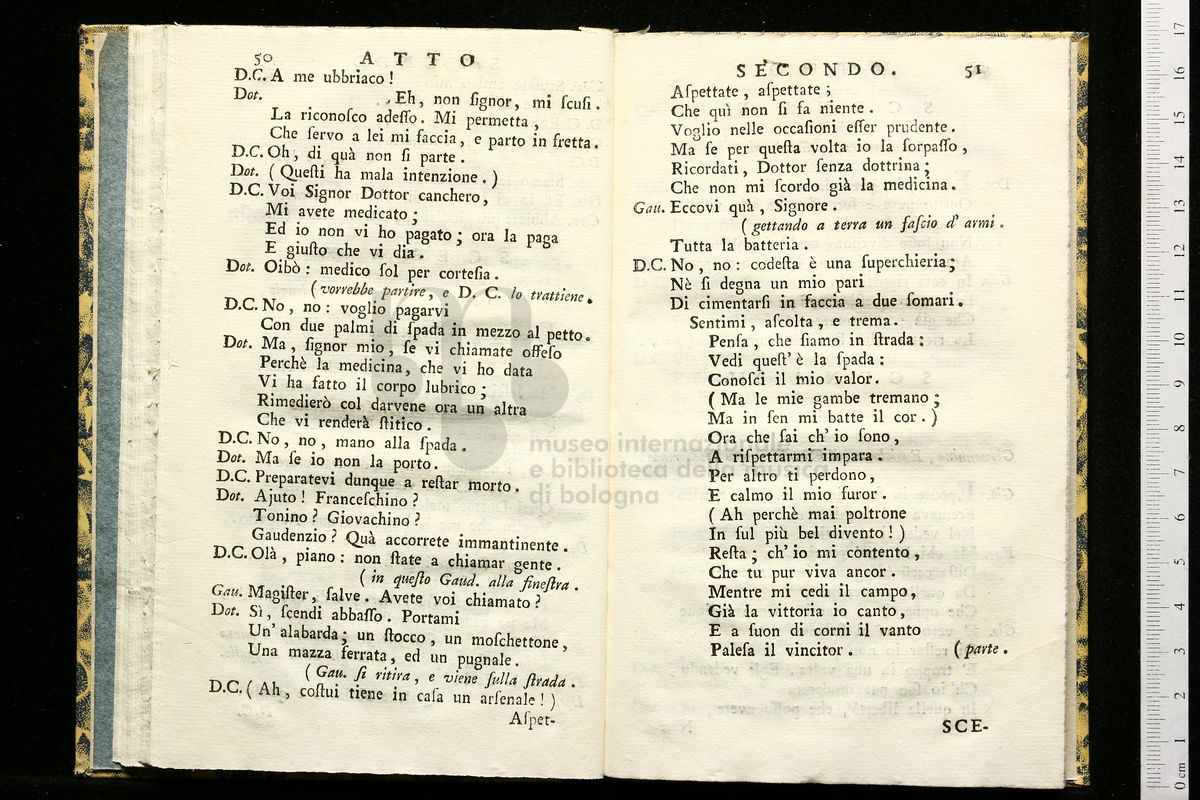 50 ATTO
D.C. A me ubbriaco!
Dot. Eh, non ſignor, mi ſcuſi.
La riconoſco adeſſo. Mi permetta,
Che ſervo a lei mi faccia, e parto in fretta.
D.C. Oh, di quà non ſi parte.
Dot. (Queſti ha mala intenzione.)
D.C. Voi Signor Dottor canchero,
Mi avete medicato;
Ed io non vi ho pagato; ora la paga
E giuſto che vi dia.
Dot. Oibò: medico ſol per corteſia.
(vorrebbe partire, e D. C. lo trattiene.
D.C. No, no: voglio pagarvi
Con due palmi di ſpada in mezzo al petto.
Dot. Ma, ſignor mio, ſe vi chiamate offeſo
Perchè la medicina, che vi ho data
Vi ha fatto il corpo lubrico;
Rimedierò col darvene ora un altra
Che vi renderà ſtitico.
D.C. No, no, mano alla ſpada.
Dot. Ma ſe io non la porto.
D.C. Preparatevi dunque a reſtar morto.
Dot. Ajuto! Franceſchino?
Tonino? Giovachino?
Gaudenzio? Quà accorrete immantinente.
D.C. Olà, piano: non ſtate a chiamar gente.
(in queſto Gaud. alla fineſtra.
Gau. Magiſter, ſalve. Avete voi chiamato?
Dot. Sì, ſcendi abbaſſo. Portami
Un' alabarda; un ſtocco, un moſchettone,
Una mazza ferrata, ed un pugnale.
(Gau. ſi ritira, e viene ſulla ſtrada.
D.C. (Ah, coſtui tiene in caſa un arſenale!)
Aſpet-
SECONDO. 51
Aſpettate, aſpettate;
Che quì non ſi fa niente.
Voglio nelle occaſioni eſſer prudente.
Ma ſe per queſta volta io la ſorpaſſo,
Ricordati, Dottor ſenza dottrina;
Che non mi ſcordo già la medicina.
Gau. Eccovi quà, Signore.
(gettando a terra un faſcio d' armi.
Tutta la batteria.
D.C. No, no: codeſta è una ſuperchieria;
Nè ſi degna un mio pari
Di cimentarſi in faccia a due ſomari.
Sentimi, aſcolta, e trema.
Penſa, che ſiamo in ſtrada:
Vedi queſt' è la ſpada:
Conoſci il mio valor.
(Ma le mie gambe tremano;
Ma in ſen mi batte il cor.)
Ora che ſai ch' io ſono,
A riſpettarmi impara.
Per altro ti perdono,
E calmo il mio furor.
(Ah perchè mai poltrone
In ſul più bel divento!)
Reſta; ch' io mi contento,
Che tu pur viva ancor.
Mentre mi cedi il campo,
Già la vittoria io canto,
E a ſuon di corni il vanto
Paleſa il vincitor. (parte.
SCE-
museo internazionale
e biblioteca della musica
di bologna
0 cm 1 2 3 4 5 6 7 8 9 10 11 12 13 14 15 16 17